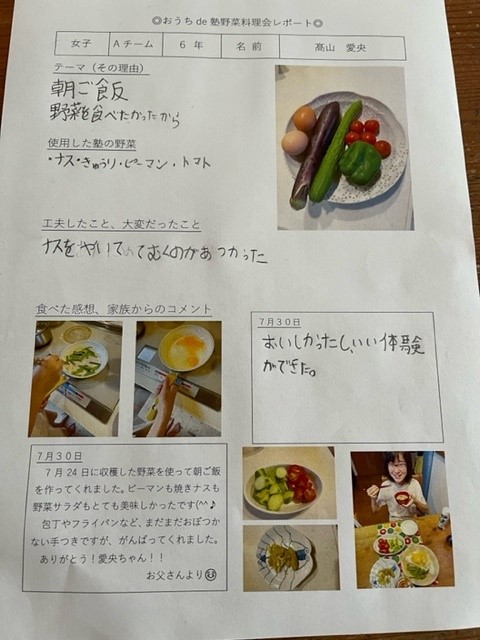 ◎おうち de 塾野菜料理会レポート◎
女子 Aチーム 6 年 名 前 髙山 愛央
テーマ（その理由）
朝ご飯
野菜を食べたかったから
使用した塾の野菜
・ナス・きゅうり・ピーマン・トマト
工夫したこと、大変だったこと
ナスをやいててむくのがあつかった
食べた感想、家族からのコメント
7月30日
おいしかったし、いい体験
ができた。
7月30日
7月24日に収穫した野菜を使って朝ご飯
を作ってくれました。ピーマンも焼きナスも
野菜サラダもとても美味しかったです(^^♪
包丁やフライパンなど、まだまだおぼつか
ない手つきですが、がんばってくれました。
ありがとう！愛央ちゃん！！
お父さんより☺